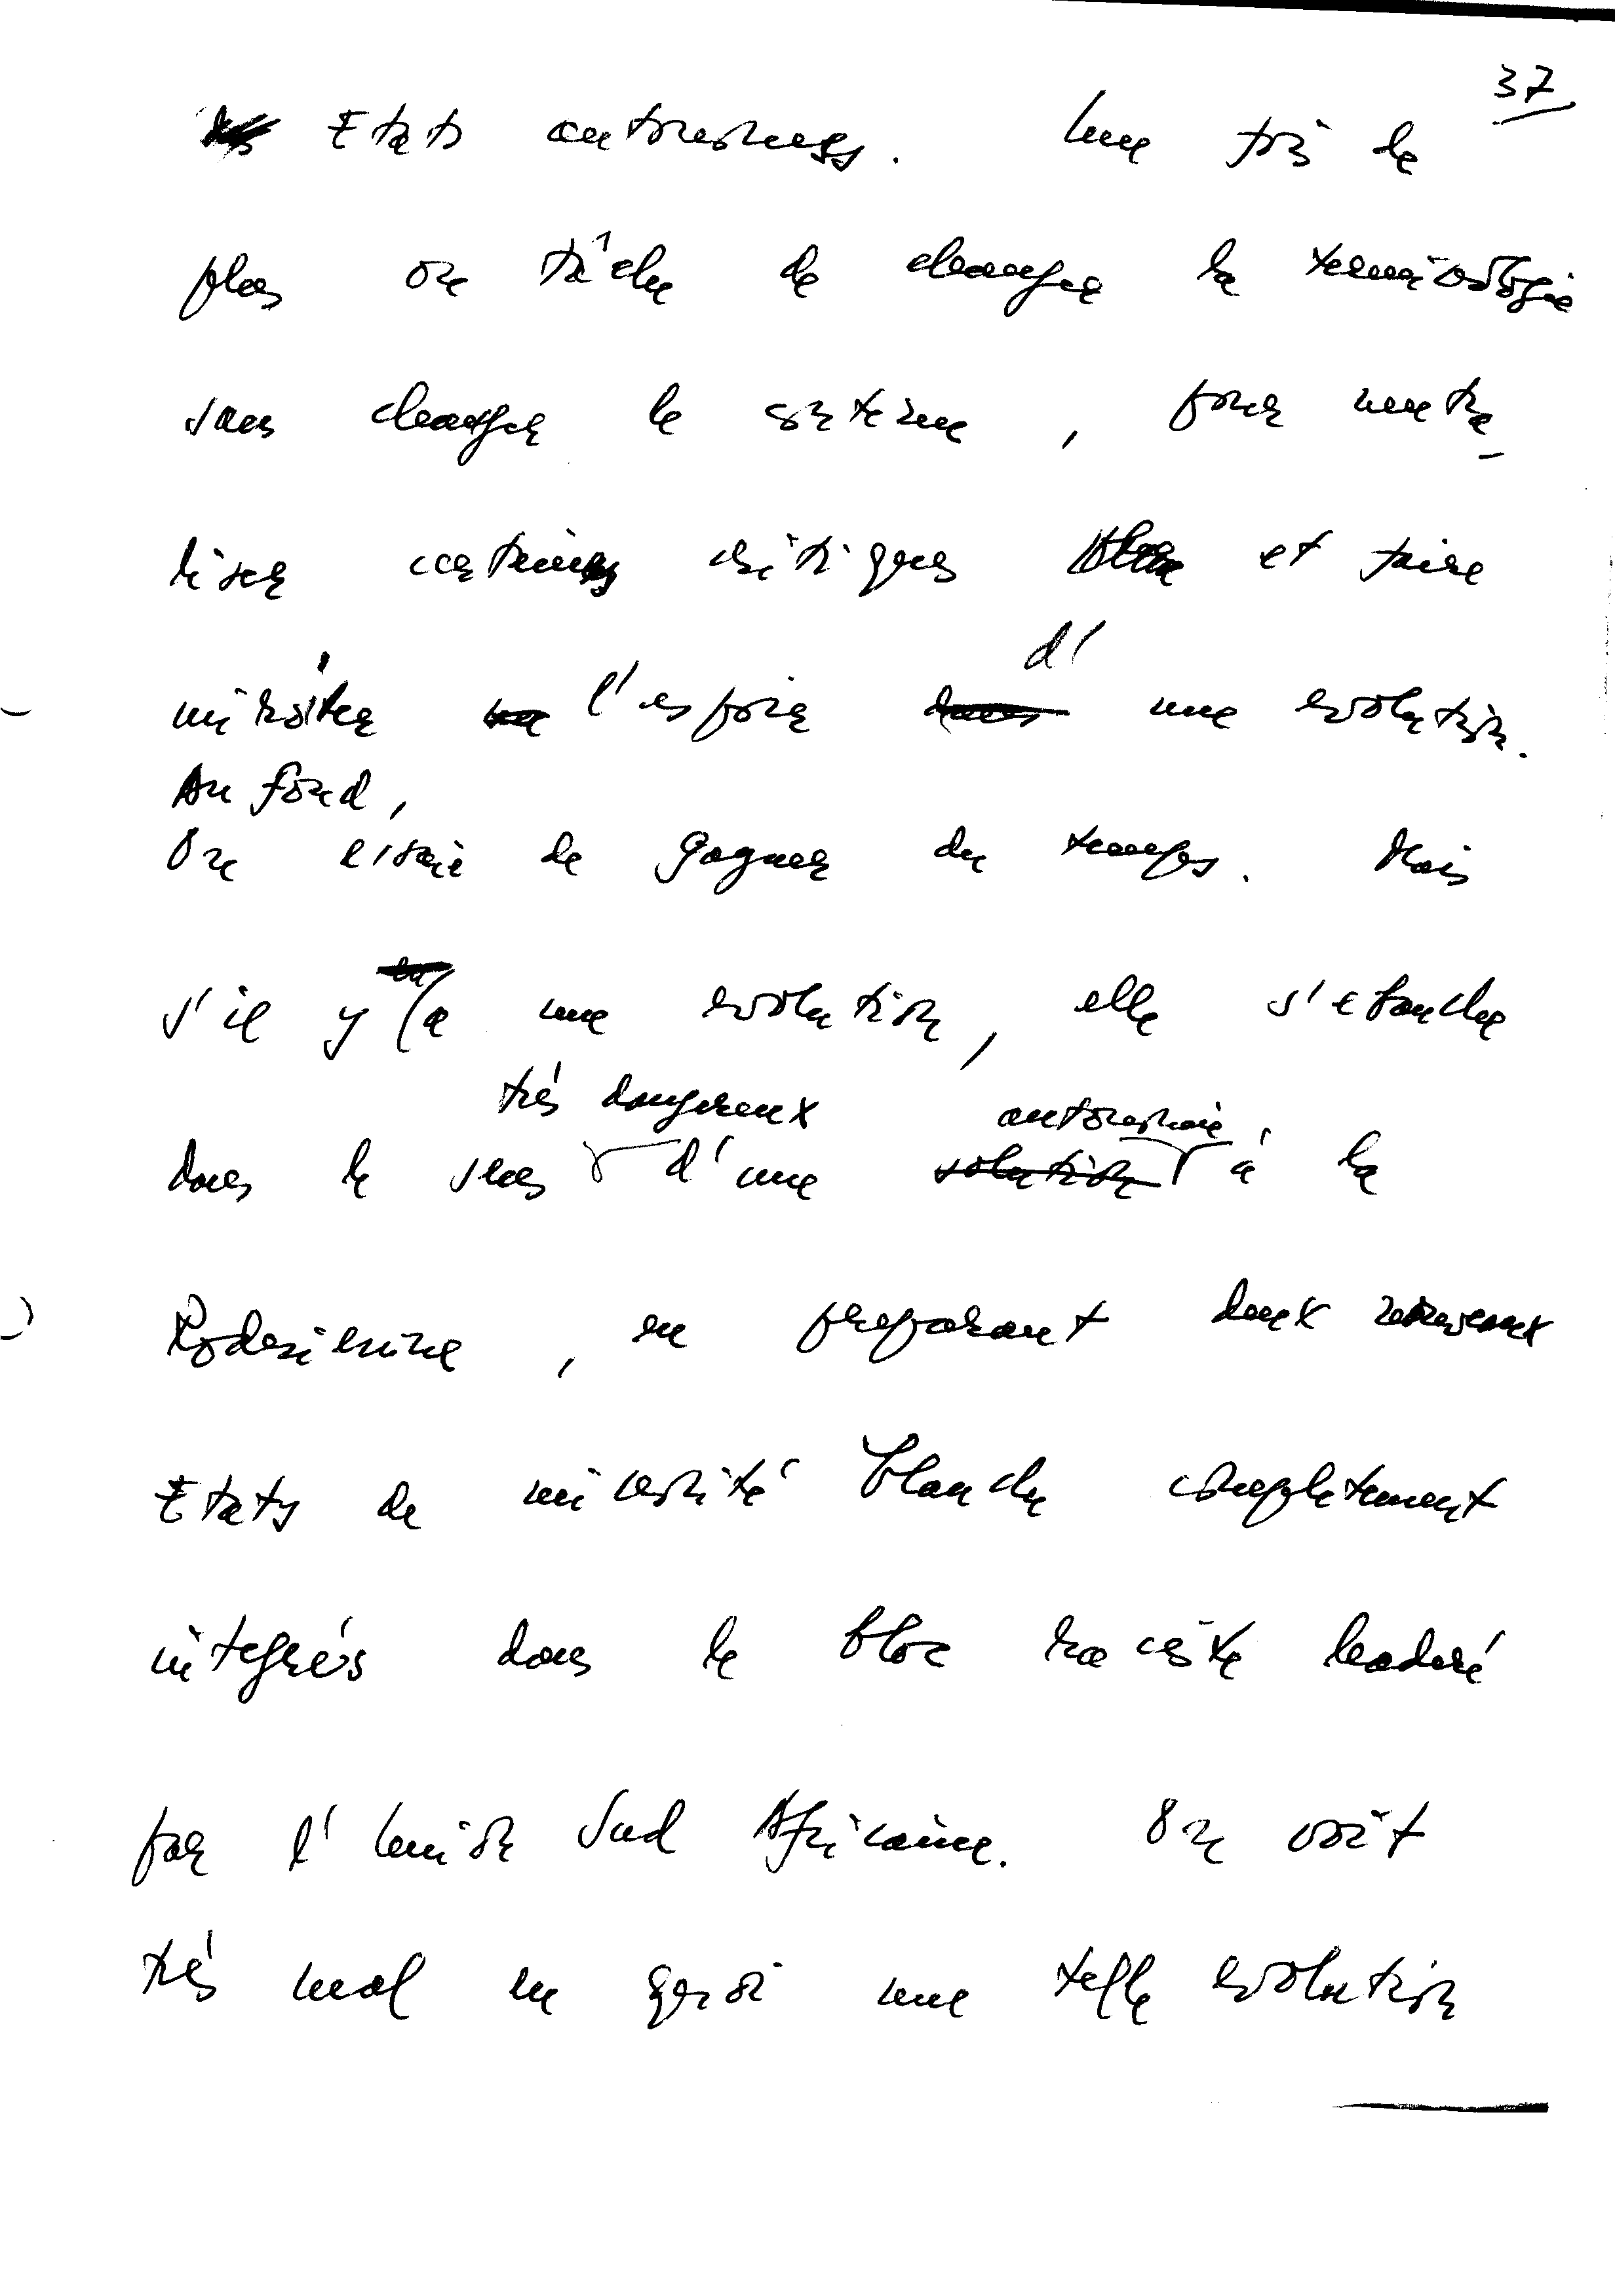 37
Etats autonomes. Une fois de
plus on tâche de changer la terminologie
sans changer le système, pour neutra-
liser certaines critiques et faire
miroiter l'espoir d'une evolution.
Au fond,
On essaie de gagner du temps. Mais
s'il y a une evolution, elle s'ebauche
très dangereux autonomie
dans le sens d'une solution à la
Rodesienne, en preparant deux nouveaux
Etats de minorité blanche completement
integrés dans le bloc raciste leaderé
par l'Union Sud Africaine. On voit
très mal en quoi une telle evolution